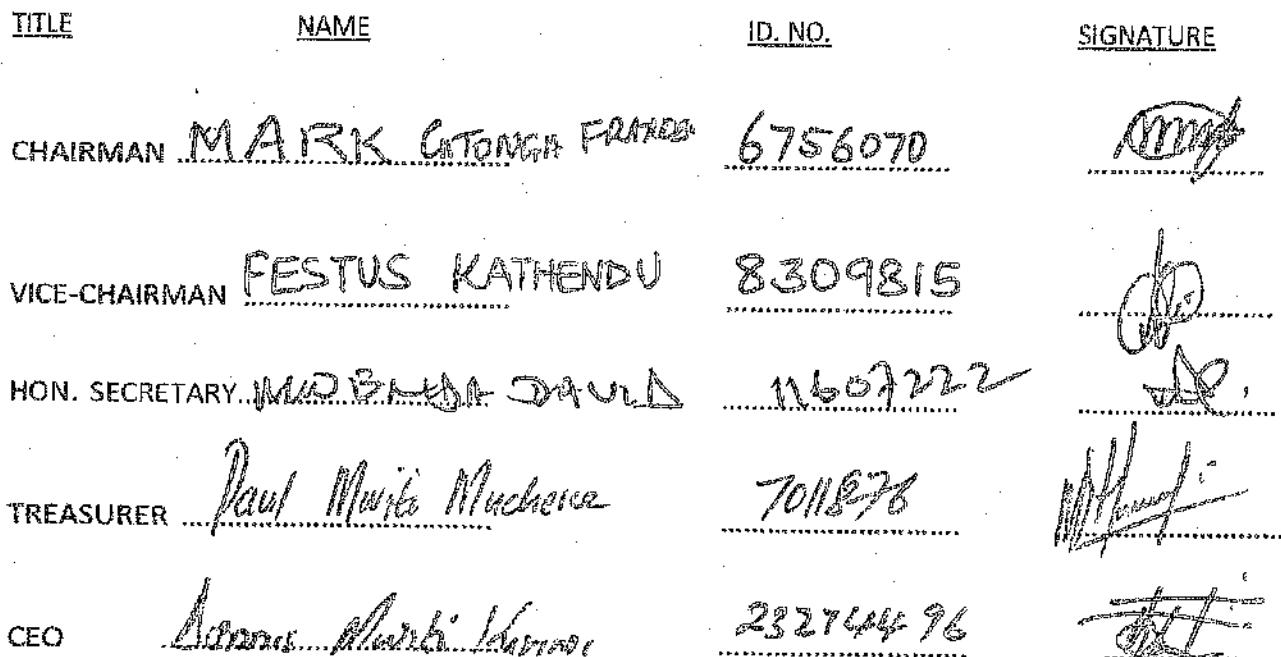 TITLE NAME ID. NO. SIGNATURE
CHAIRMAN MARK GITONGA 6756070
VICE-CHAIRMAN FESTUS KATHENDU 8309815
HON. SECRETARY DAVID 11607222
TREASURER Paul Mwiti Mucheke 7011876
CEO Mwiti 23274496